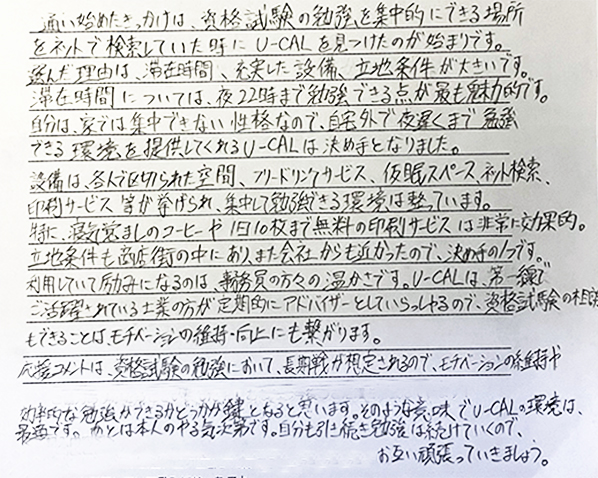 通い始めたきっかけは、資格試験の勉強を集中的にできる場所
をネットで検索していた時にU-CALを見つけたのが始まりです。
選んだ理由は、滞在時間、充実した設備、立地条件が大きいです。
滞在時間については、夜22時まで勉強できる点が最も魅力的です。
自分は、家では集中できない性格なので、自宅外で夜遅くまで勉強
できる環境を提供してくれるU-CALは決め手となりました。
設備は、各人で区切られた空間、フリードリンクサービス、仮眠スペース、ネット検索、
印刷サービス等が挙げられ、集中して勉強できる環境は整っています。
特に、眠気覚ましのコーヒーや1日10枚まで無料の印刷サービスは非常に効果的。
立地条件も商店街の中にあり、また会社からも近かったので、決め手の1つです。
利用していて励みになるのは、事務員の方々の温かさです。U-CALは、第一線で
ご活躍されている士業の方が定期的にアドバイザーとしていらっしゃるので、資格試験の相談
もできることは、モチベーションの維持・向上にも繋がります。
応募コメントは、資格試験の勉強において、長期戦が想定されるので、モチベーションの維持や
効率的な勉強ができるかどうかが鍵となると思います。そのような意味でU-CALの環境は、
最適です。あとは本人のやる気次第です。自分も引き続き勉強は続けていくので、
お互い頑張っていきましょう。